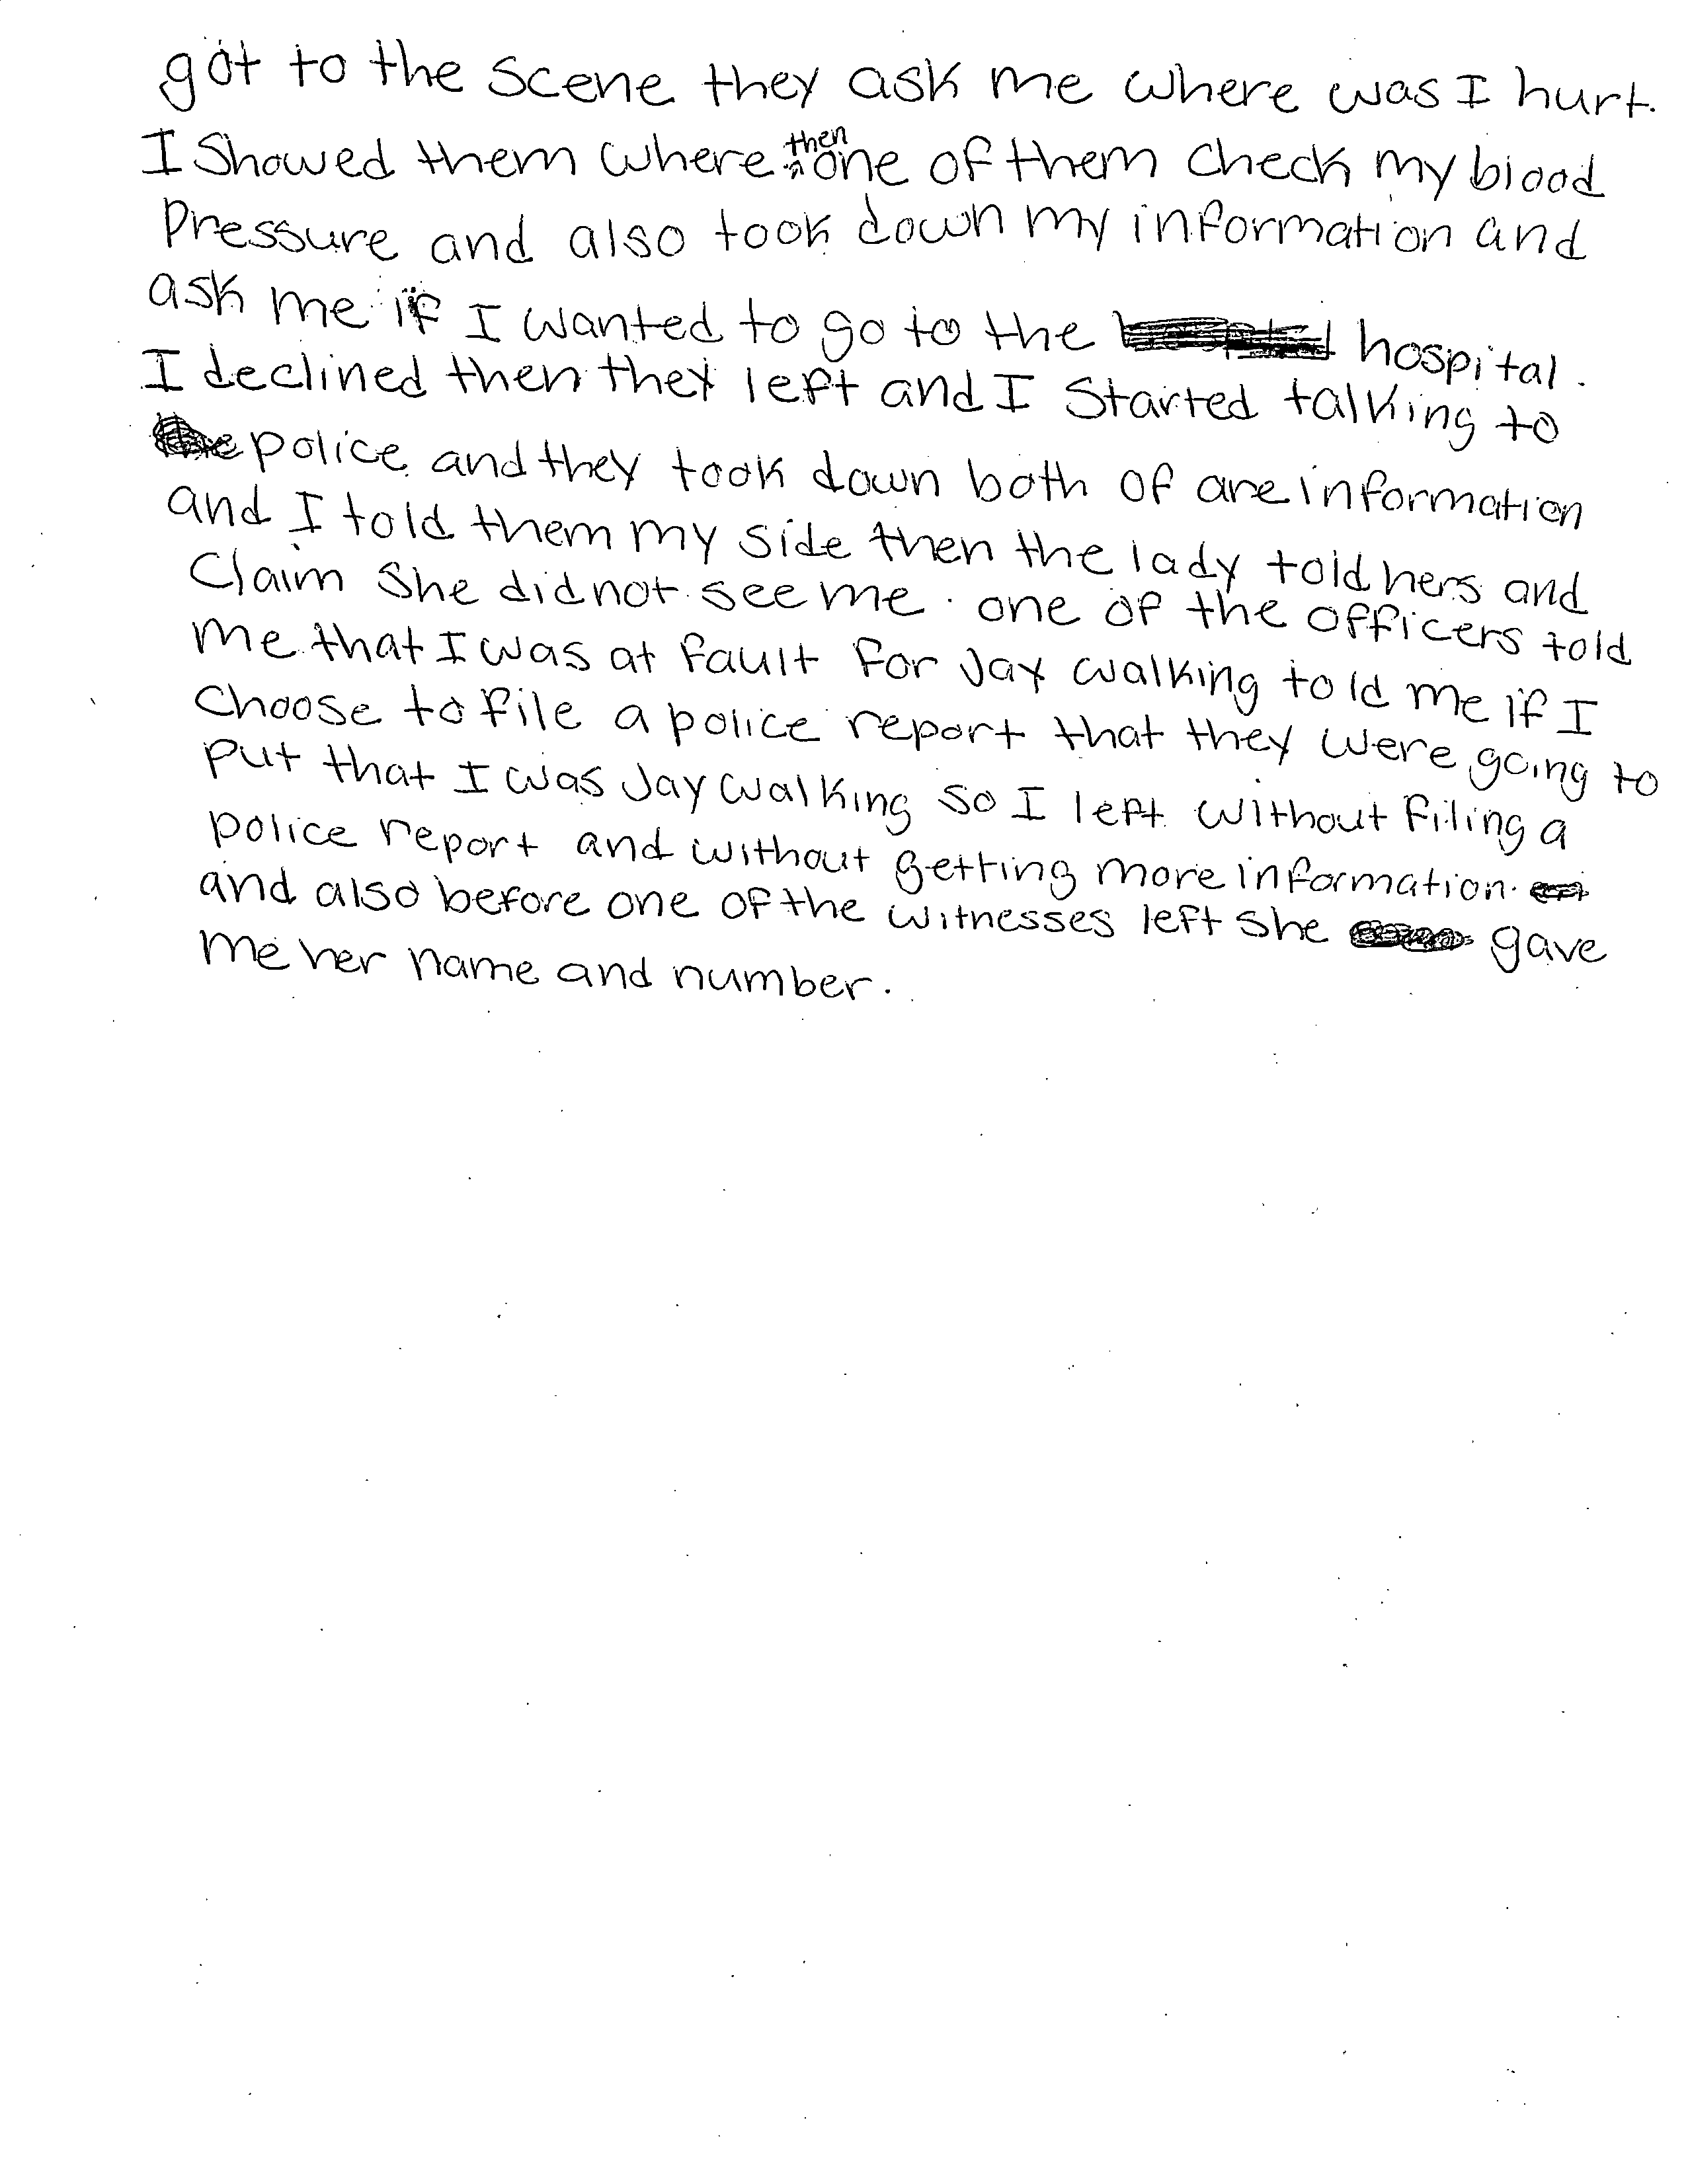 got to the scene they ask me where was I hurt.
I Showed them where then one of them check my blood
Pressure and also took down my information and
ask me if I wanted to go to the hospital.
I declined then they left and I Started talking to
police and they took down both of are information
and I told them my side then the lady told hers and
Claim She did not see me. one of the officers told
me that I was at fault for Jay walking told me if I
Choose to file a police report that they were going to
put that I was Jay walking so I left without filing a
police report and without getting more information.
and also before one of the witnesses left she gave
me her name and number.